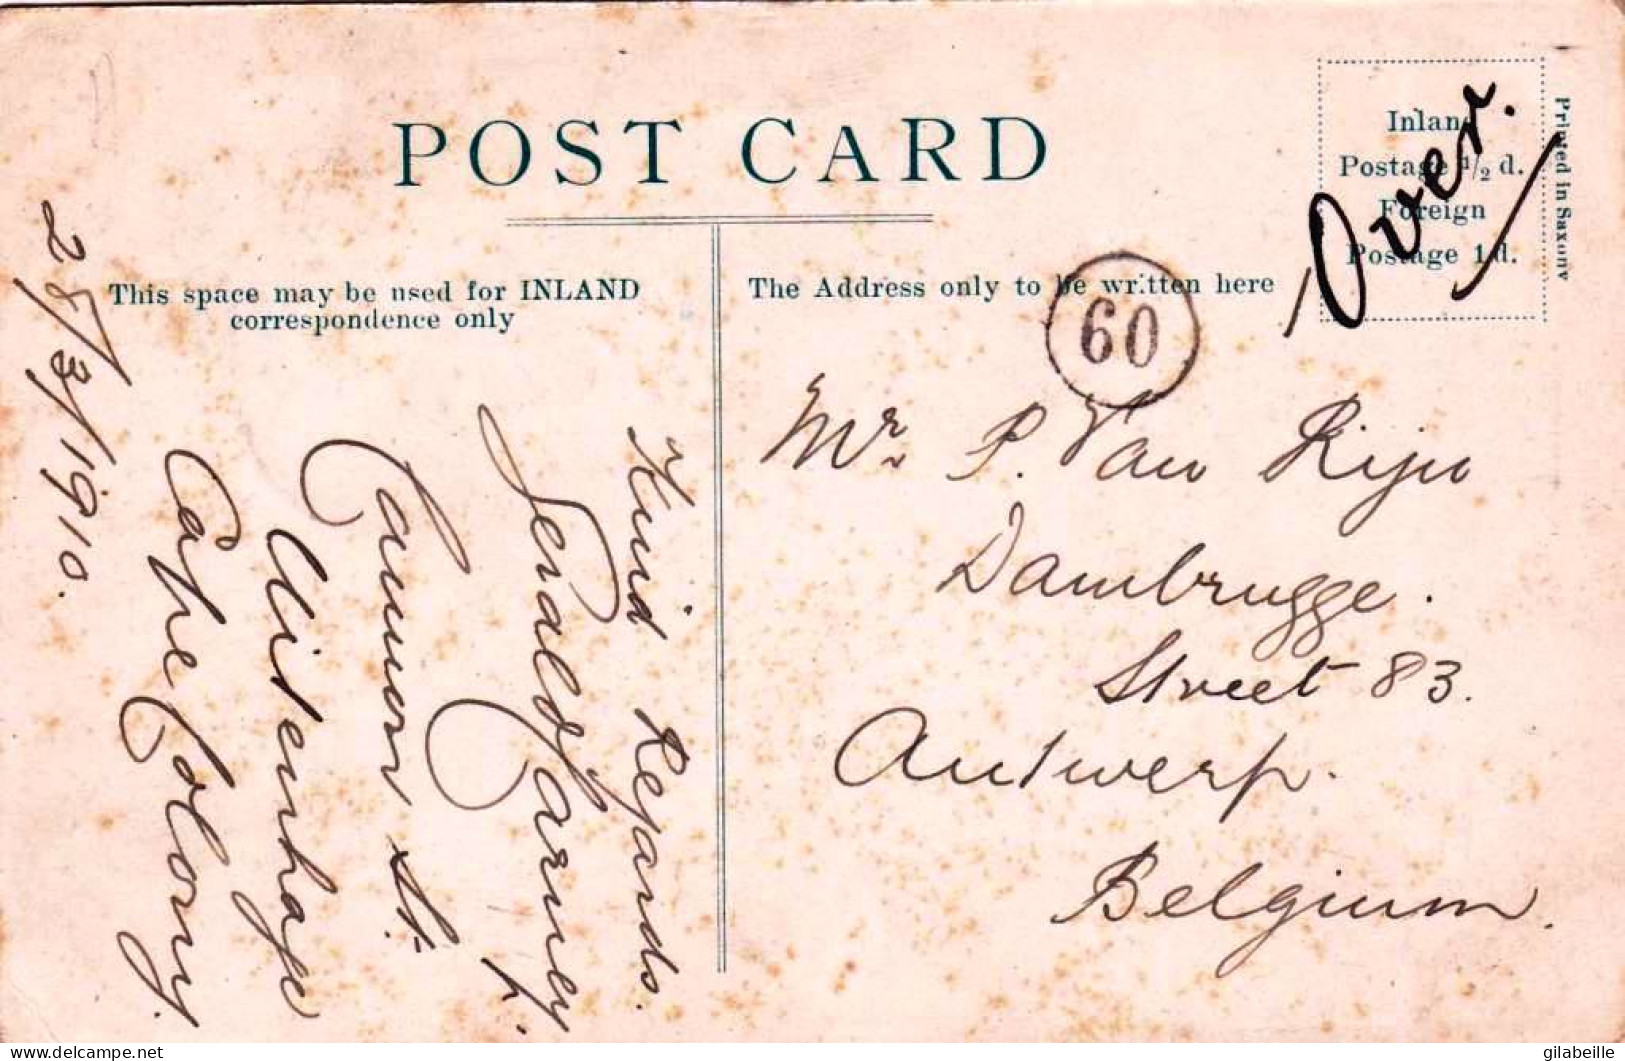 POST CARD
Inland
Postage 1/2 d.
Foreign
Postage 1d.
Over.
Printed in Saxony
This space may be used for INLAND
correspondence only
The Address only to be written here
60
Mr. P. Van Rijn
Dambrugge.
Street 83.
Antwerp.
Belgium.
Kind Regards.
Gerald
Cannon St.
Uitenhage
Cape Colony.
28/3/1910.
delcampe.net
gilabeille